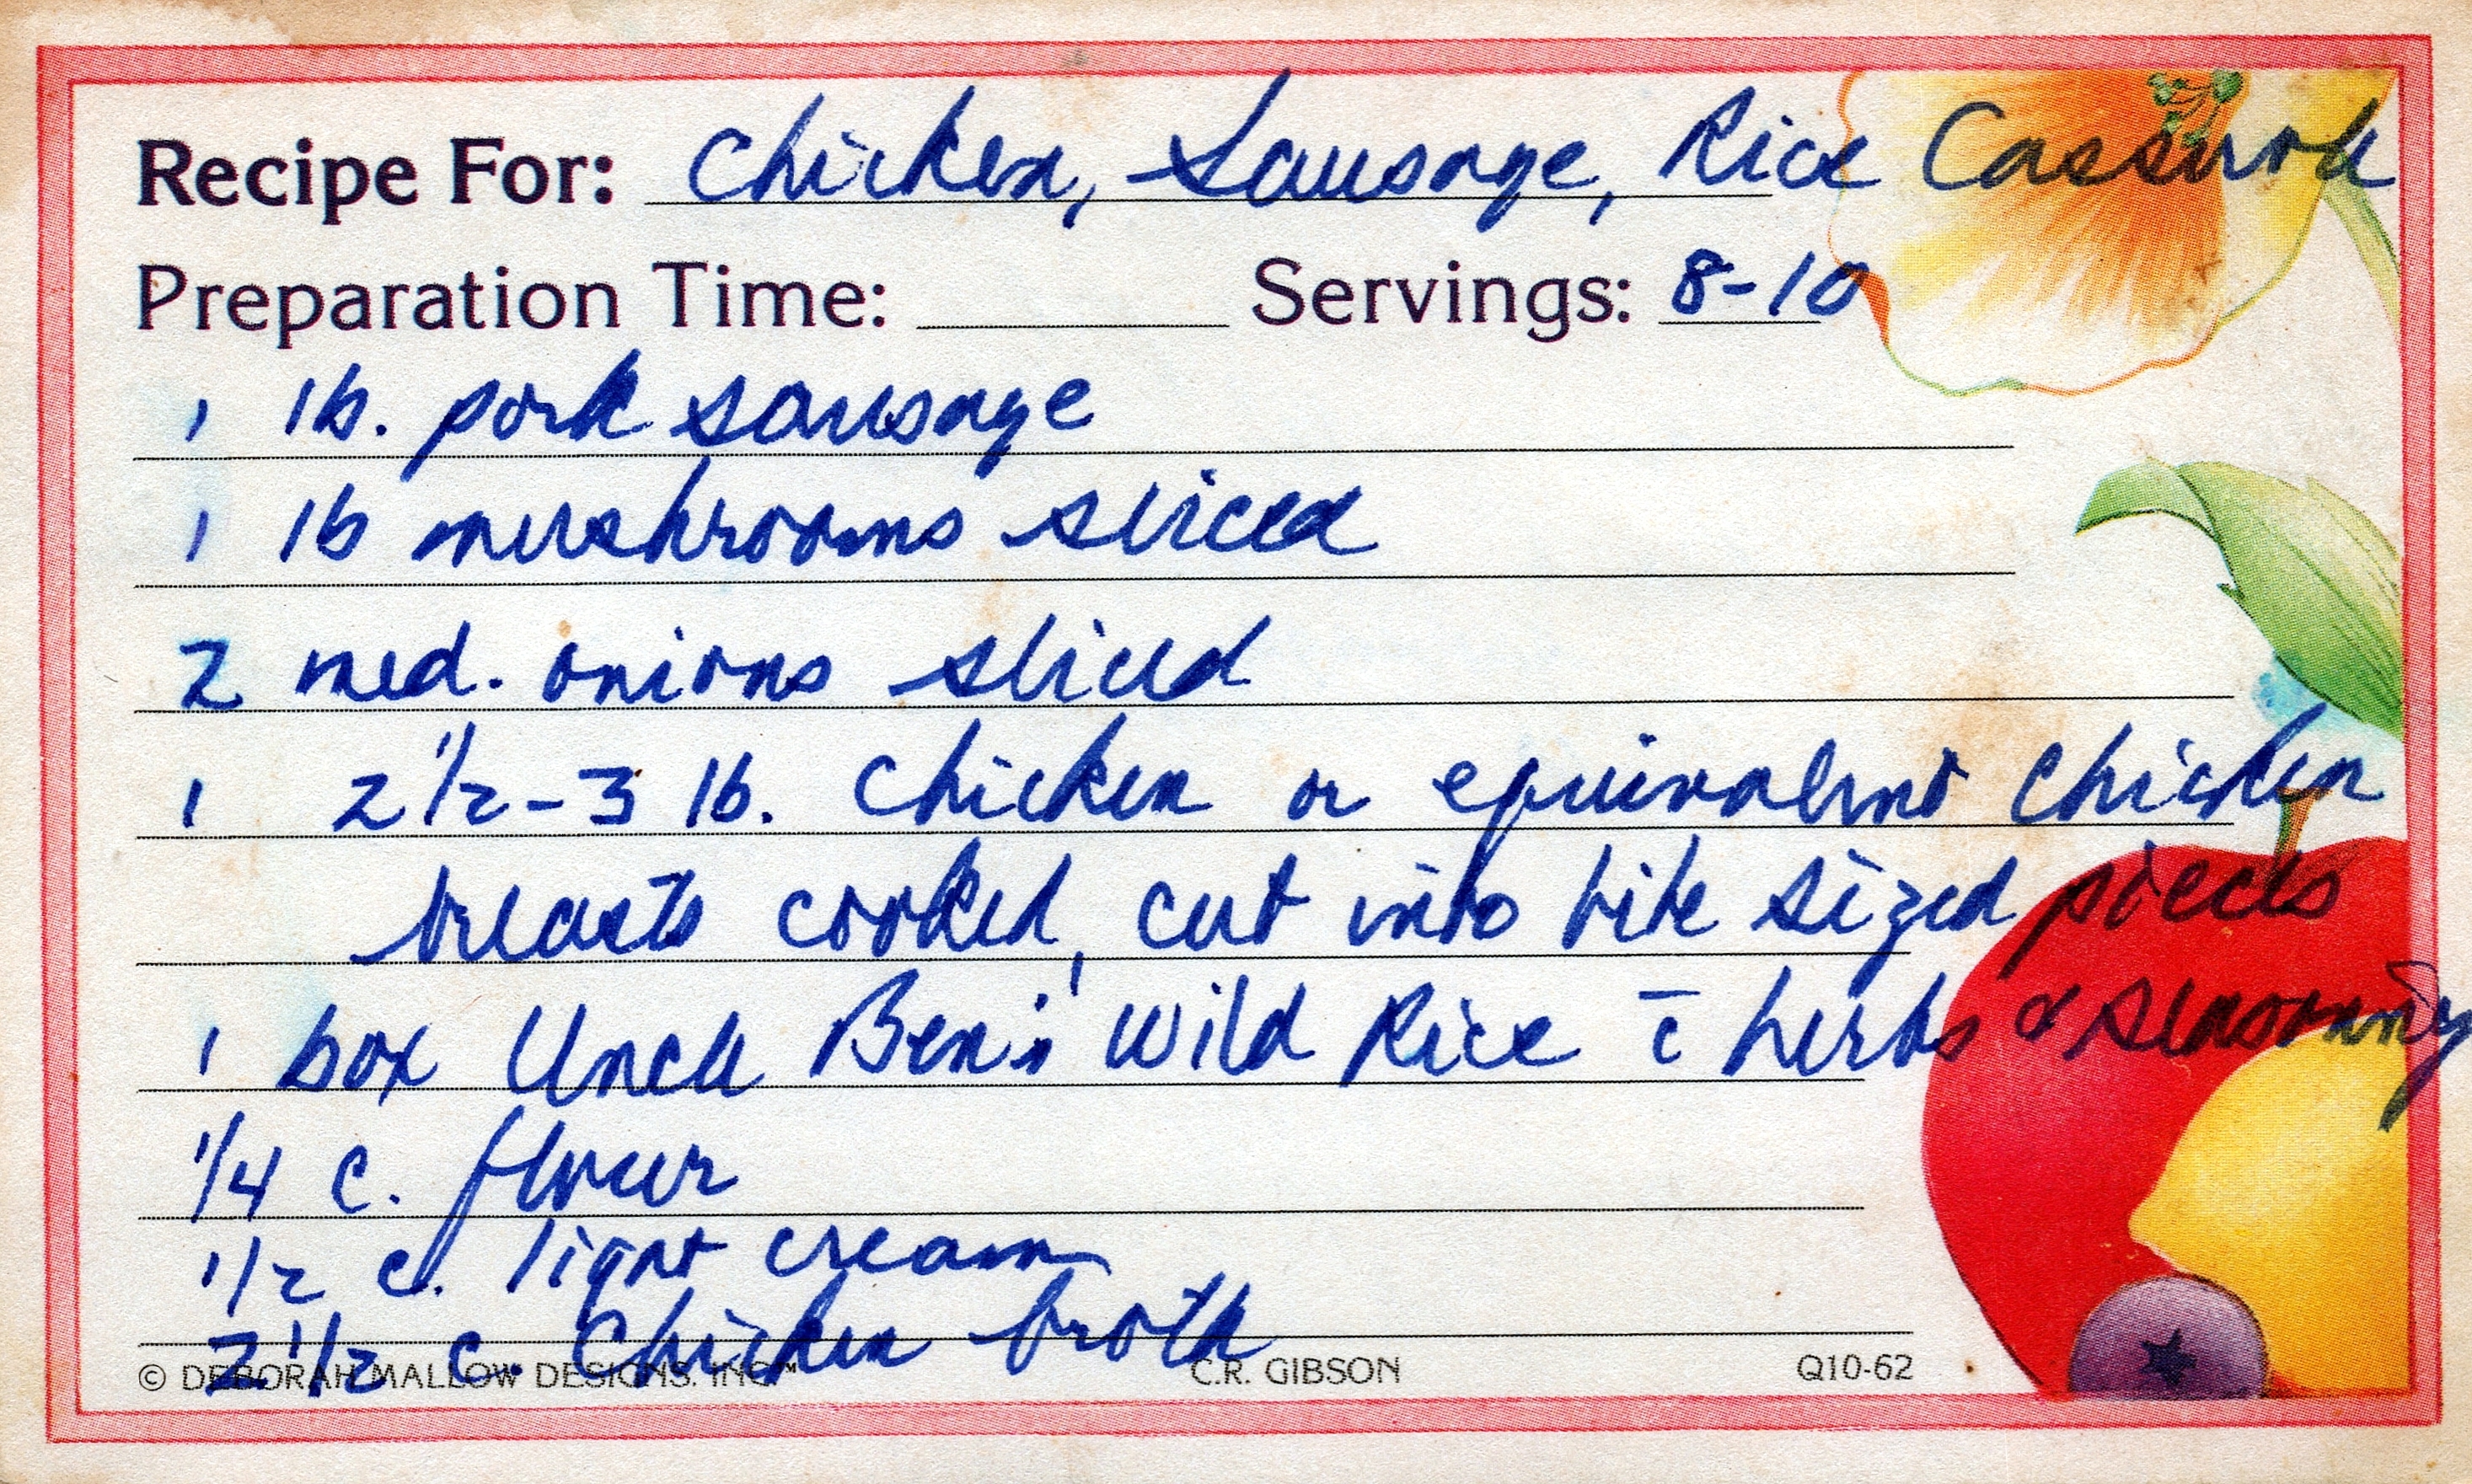 Recipe For: Chicken, Sausage, Rice Casserole
Preparation Time: Servings: 8-10
1 lb. pork sausage
1 lb mushrooms sliced
2 med. onions sliced
1 2 1/2-3 lb. chicken or equivalent chicken
breasts cooked, cut into bite sized pieces
1 box Uncle Ben's Wild Rice c̄ herbs & seasoning
1/4 c. flour
1/2 c. light cream
2 1/2 c. Chicken broth
© DEBORAH MALLOW DESIGNS. INC.™ C.R. GIBSON Q10-62